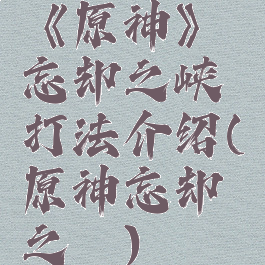 《原神》
忘却之峡
打法介绍(
原神忘却
之 )